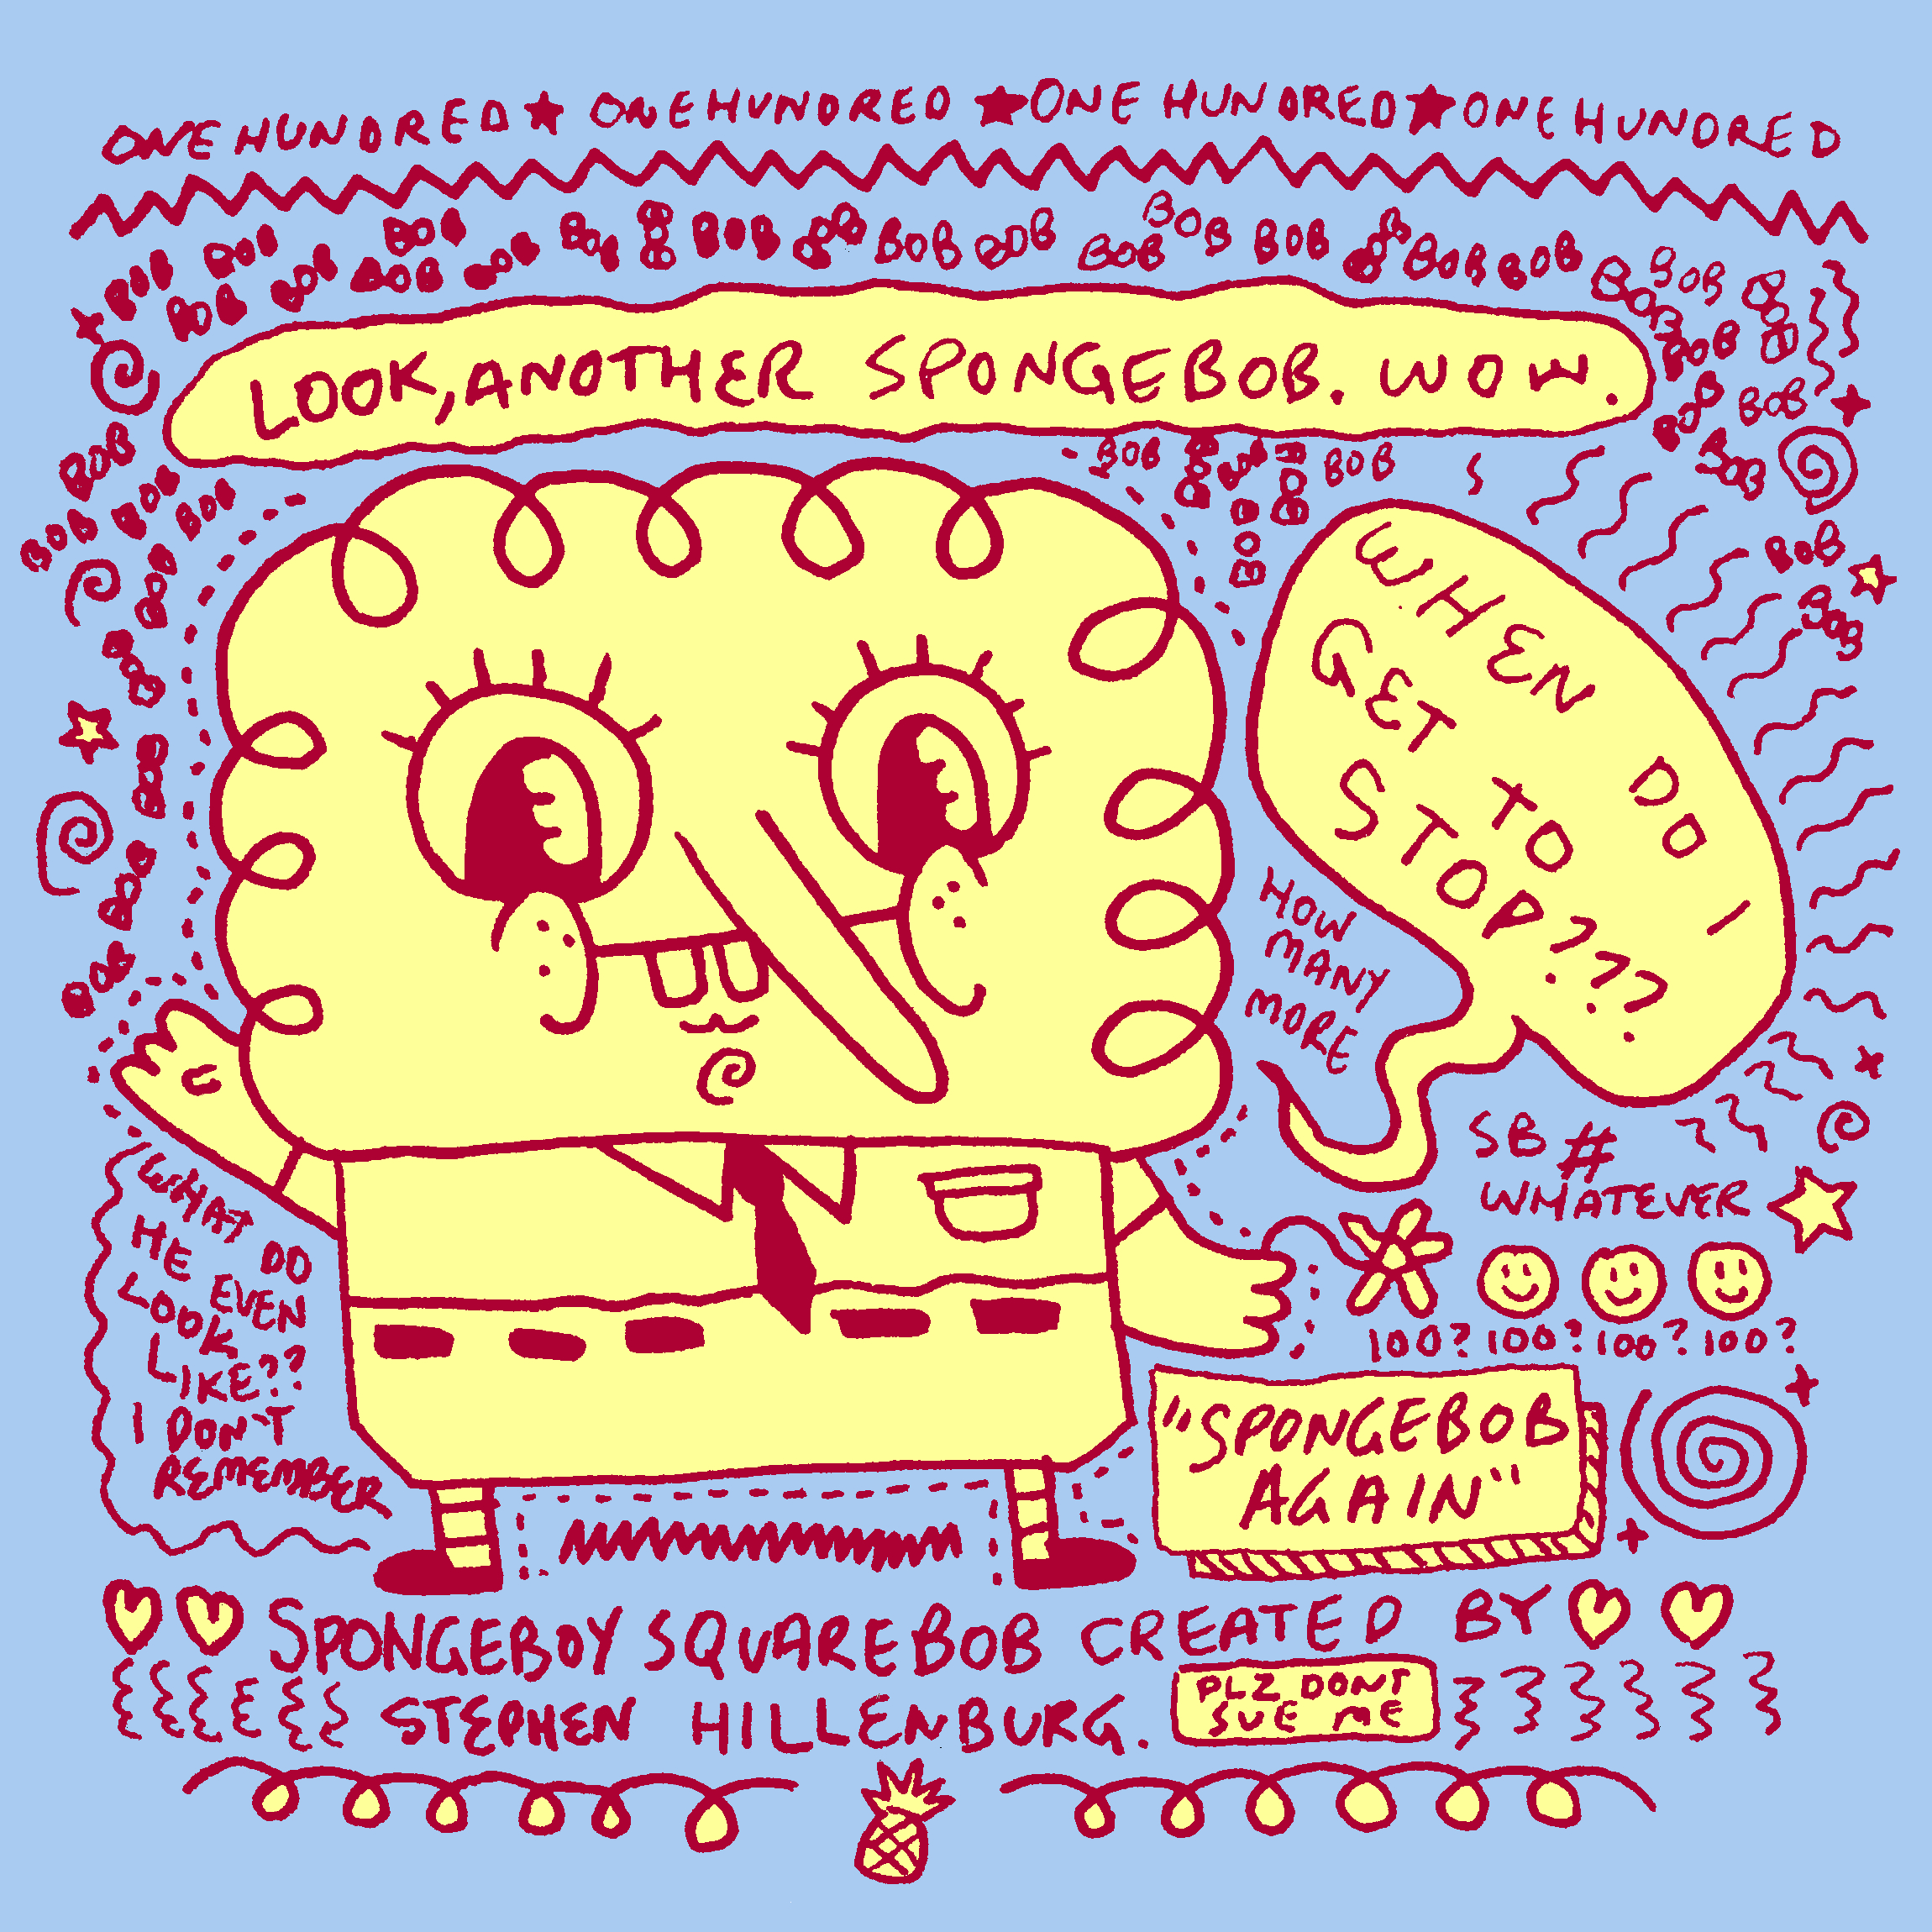 ONE HUNDRED ★ ONE HUNDRED ★ ONE HUNDRED ★ ONE HUNDRED
BOB BOB BOB BOB BOB BOB BOB BOB BOB BOB BOB BOB BOB BOB BOB BOB BOB BOB BOB BOB BOB BOB BOB
LOOK, ANOTHER SPONGEBOB. WOW.
BOB BOB BOB BOB BOB
BOB BOB BOB BOB
BOB BOB BOB
BOB BOB
BOB
BOB
BOB
BOB
WHEN DO I
GET TO
STOP???
HOW
MANY
MORE
SB #
WHATEVER
100? 100? 100? 100?
WHAT DO
HE EVEN
LOOK
LIKE??
I DON'T
REMEMBER
"SPONGEBOB
AGAIN"
SPONGEBOY SQUAREBOB CREATED BY
STEPHEN HILLENBURG.
PLZ DONT
SUE ME